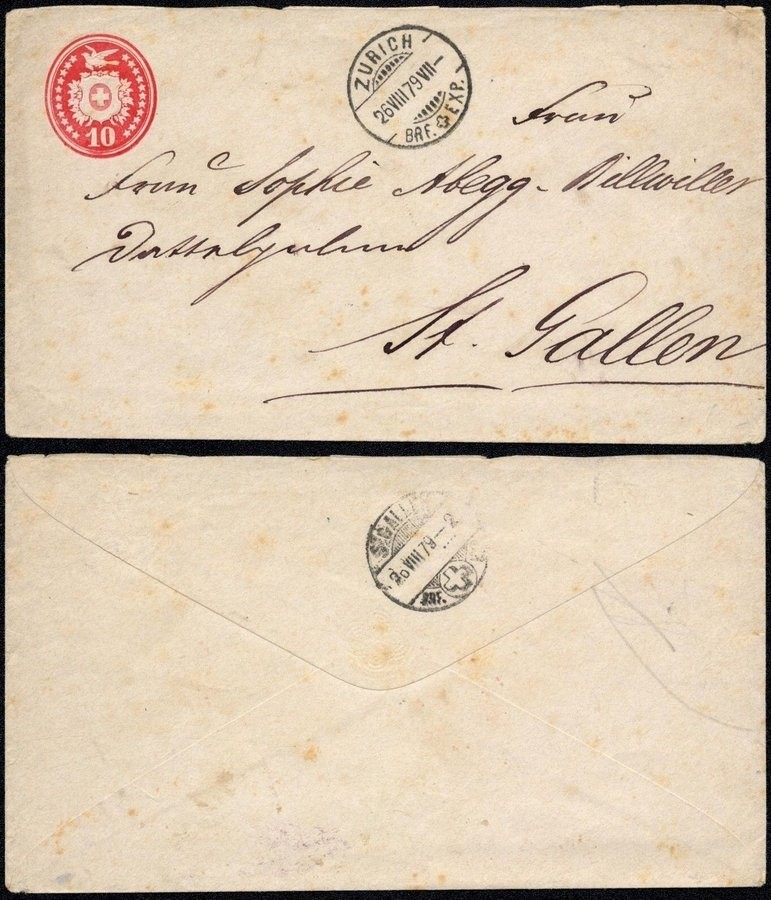 10
ZÜRICH
26VIII79VII-
BRF. EXP.
Frau
Frau Sophie Abegg-Billwiller
St. Gallen
ST.GALLE
26VIII79-2
BRF.